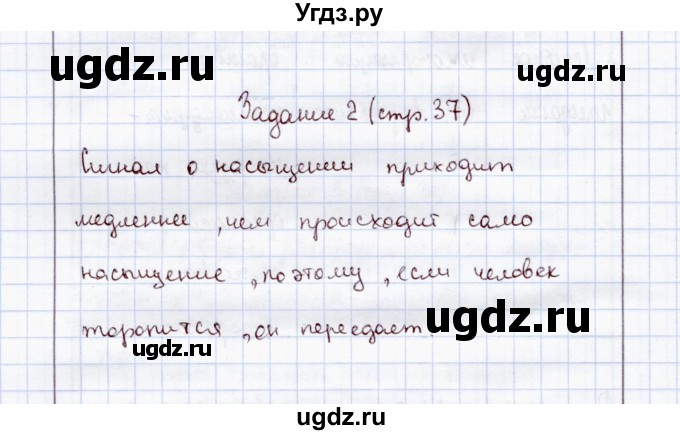 Угдз.ру
ugdz.ru
ugdz.ru
Задание 2 (стр. 37)
Сигнал о насыщении приходит
медленнее, чем происходит само
насыщение, поэтому, если человек
торопится, он переедает.
ugdz.ru
ugdz.ru
ugdz.ru
ugdz.ru